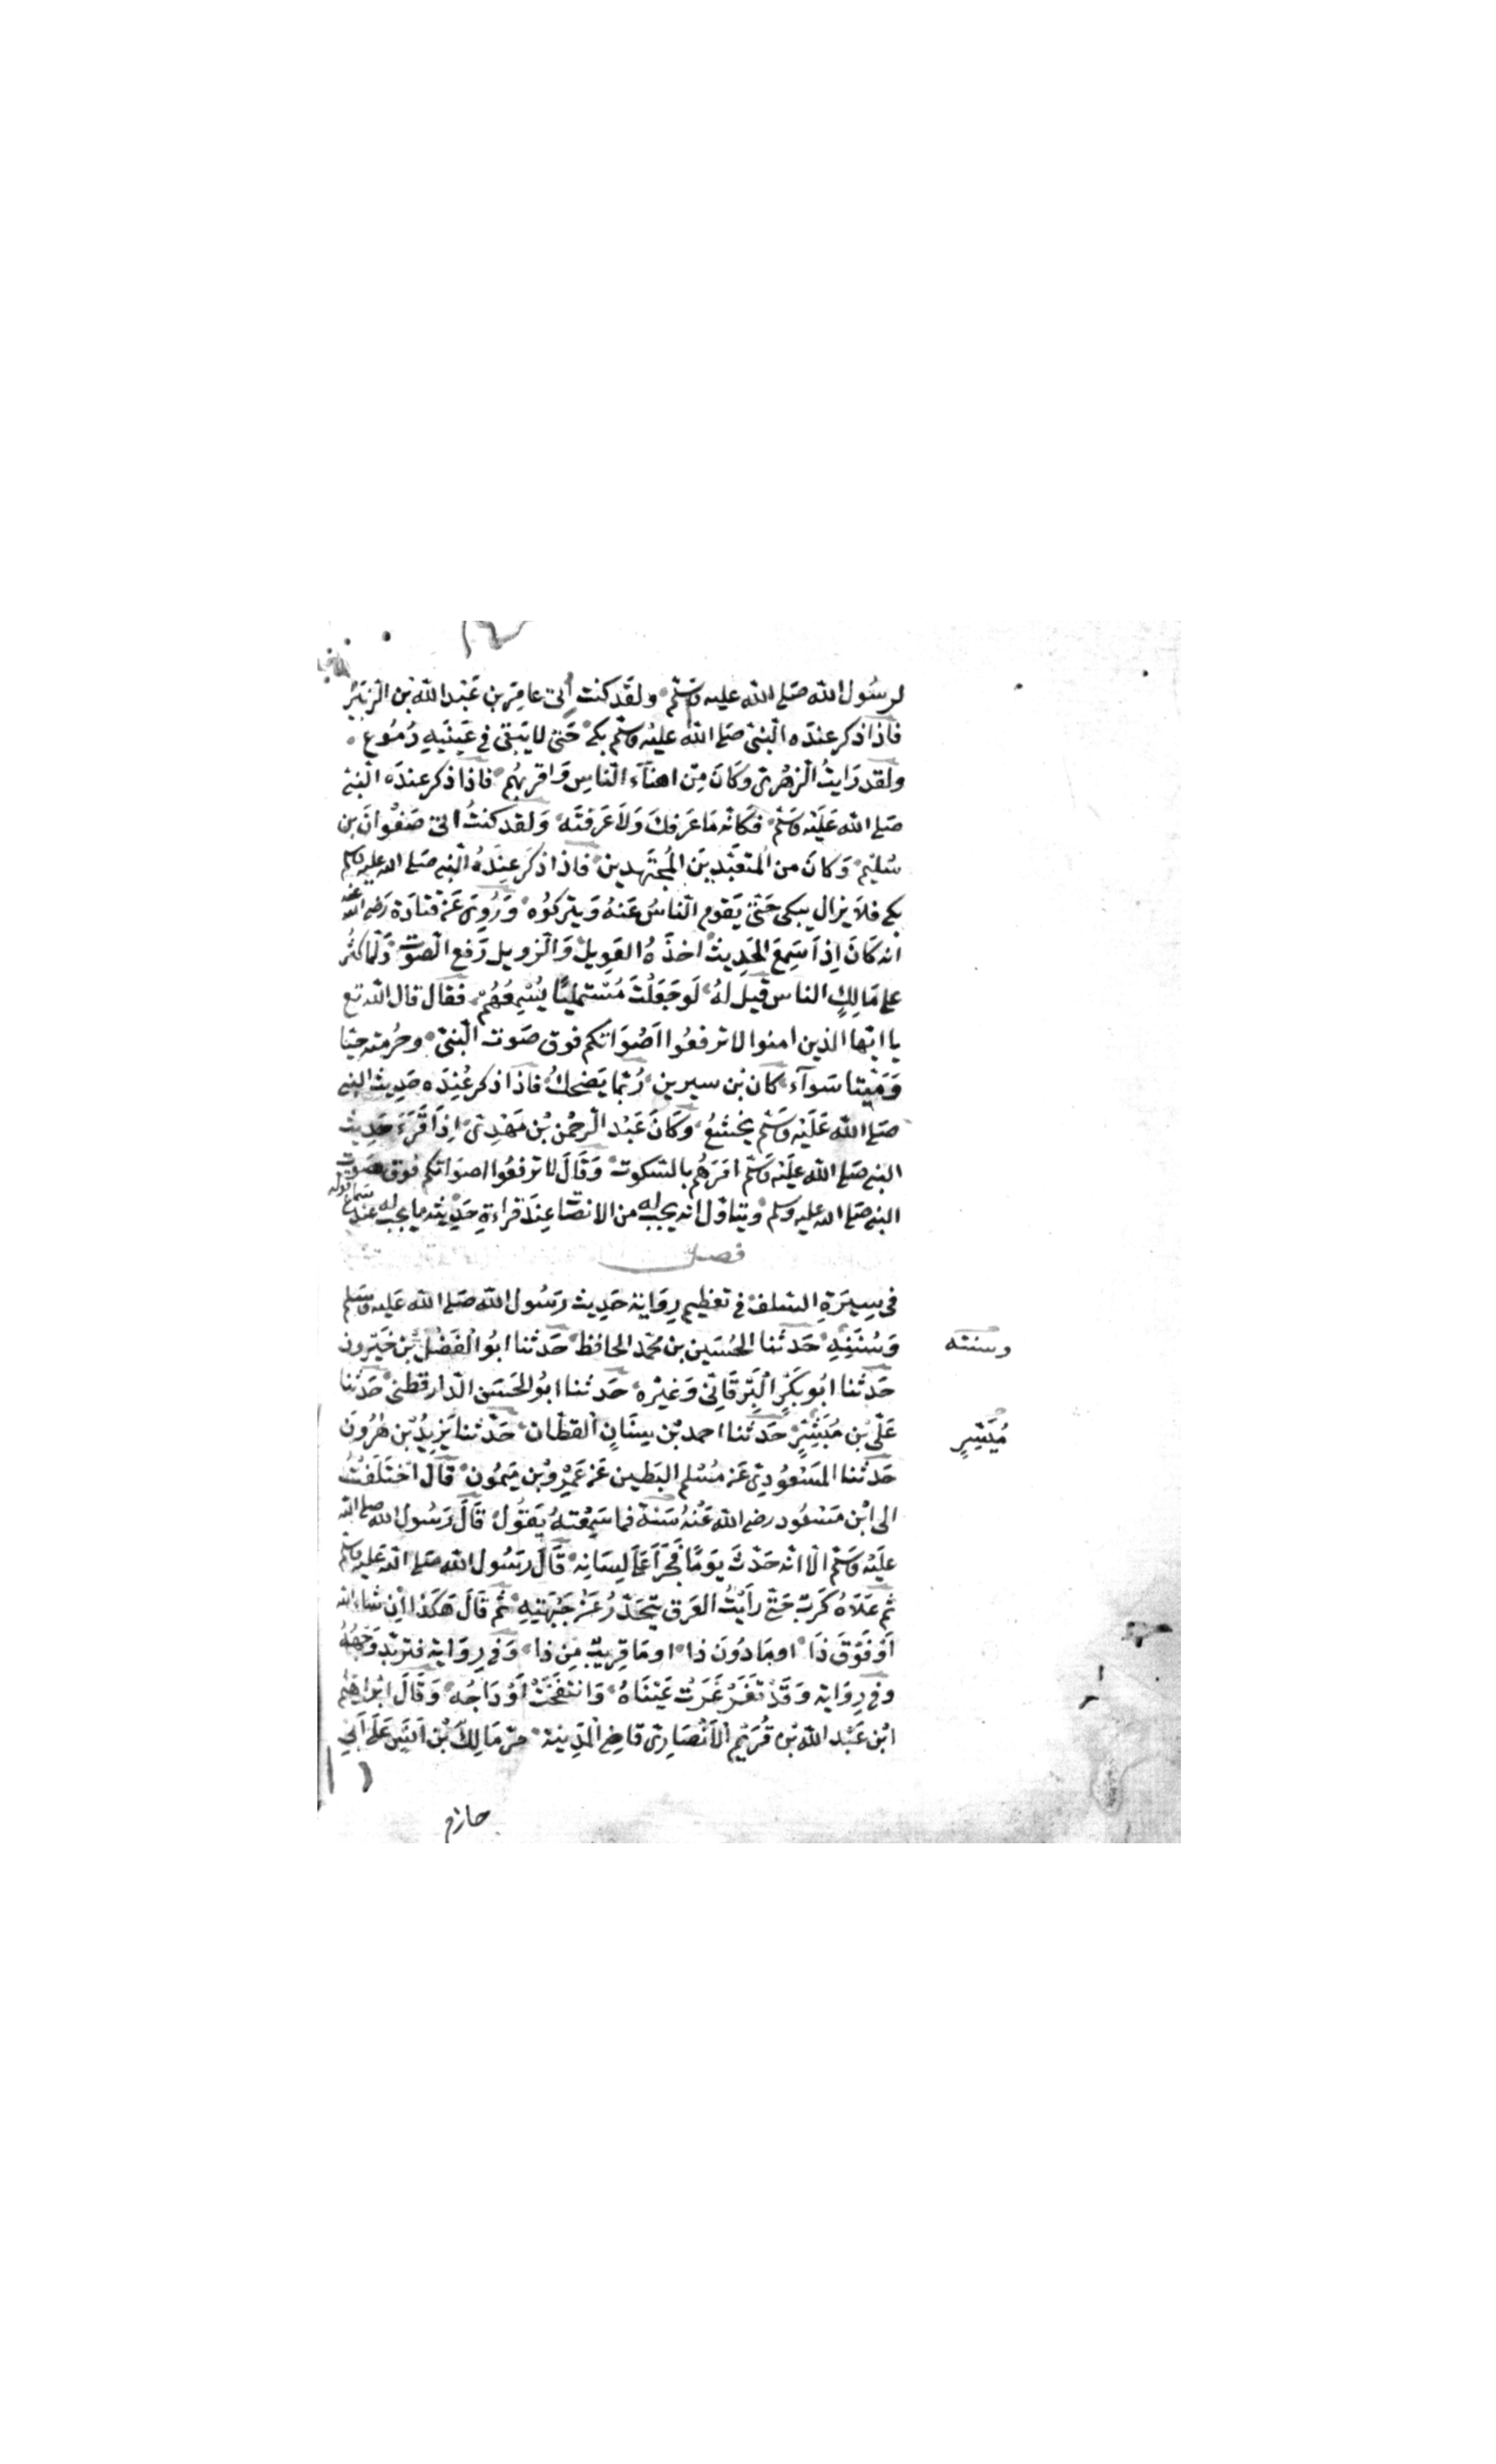 لرسُول الله صَلى الله عليه وَسَلم ولقَد كنت اٰتى عامِرَ بن عَبْد الله بْن الزبَيْر
فاذا ذكر عندَه النبىّ صَلى الله عليْه وسَلم بكى حَتى لا يَبقى فى عَينَيهِ دُمُوع
ولقد رَايتُ الزهْرىّ وكَانَ مِنْ اهنآءِ الناسِ وَاقربهُم فاذا ذكر عندَه النبىّ
صَلى الله عَلَيْه وَسَلم فكانه مَا عَرَفكَ وَلاَ عَرَفتَه وَلقد كنتُ اتى صَفْوانَ بن
سُليْم وَكانَ من المتعَبّدِينَ المُجتَهدِينَ فاذا ذكرَ عِندَهُ النبى صَلى الله عليه وسلم
بكى فلاَ يزال يبكى حَتّى يَقوم الناسُ عَنهُ وَيتركوُه وَرُوىَ عَنْ قتادَة رَضى الله عنه
انه كَانَ اِذاَ سَمِعَ الحَدِيثَ اخذَهُ العَوِيلُ وَالزويل رَفع الصّوْت وَلمّا كثُر
على مَالِكٍ الناس قيل لهُ لَو جَعَلْتَ مُسْتَمليًا يُسْمِعُهُمْ فقال قال الله تع
يا ايّها الذين امنوا لا ترفعُوا اَصْوَاتكم فوق صَوت النبىّ وحُرمته حيّا
وَمَيّتا سَوآء كان بْن سيرين رُبّما يَضحكُ فاذا ذكر عُنِدَه حَدِيث النبى
صَلى الله عَلَيْه وَسَلم يخشَعُ وكَانَ عَبْد الرحْمٰن بْن مَهْدِىّ اِذَا قَرَءَ حَدِيث
النبى صَلى الله عليْه وَسَلم اَمَرَهُم بالسّكوت وَقَالَ لا ترفعُوا اصوَاتكم فوق صَوت
النبى صَلى الله عليه وسلم ويتاوّل انه يجب له من الانصَات عِندَ قراءةِ حَدِيثه ما يجب له عند سَماع قوله
فصل
فى سِيرَةِ السّلف فى تعظيم رِوَايَة حَدِيث رَسُول الله صَلى الله عَليه وسَلم
وَسُنَنِهِ حَدثنا الحُسَين بن محمّد الحافظ حَدثنا ابُوا لفَضْل بْن خَيْرون
وسنته
حَدثنا ابُو بَكْرٍ البَرْقَانِى وَغيْره حَدثنا ابُو الحَسَن الدارقطنى حَدثنا
عَلىّ بن مُبَشِّرٍ حَدثنا احمد بْن سِنَانٍ القطان حَدّثنا يَزِيدُ بْن هٰرُونَ
مُيَسِّرٍ
حَدثنا المَسْعُودِىّ عَن مُسْلم البَطين عَنْ عَمْرِو بْن مَيمُون قَالَ اختَلَفْتُ
الى ابْن مَسْعُود رضى الله عَنْهُ سَنَة فما سَمِعْتهُ يَقوُل قَالَ رَسُول الله صلى الله
عليَه وَسَلم الاّ انه حَدّثَ يَومًا فجَرَا عَلى لِسَانِه قَالَ رسُول الله صَلى الله عَليه وسلم
ثم عَلاهُ كَربٌ حَتى رأيتُ العَرق يَتَحَدّرُ عَنْ جَبْهَتِهِ ثم قَالَ هَكَذا اِن شاء الله
اَوْ فَوْقَ ذَا او مَا دُونَ ذا او مَا قرِيبٌ مِن ذا وَفى رِوَاية فتربّد وَجْهُهُ
وفى رِوَايَه وَقَدْ تَغَرْغَرَتْ عَيْنَاهُ وَانتفَخَتْ اَوْدَاجُه وَقَالَ ابْراهيم
ابْن عَبْد الله بْن قُرَيْم الاَنْصَارِىّ قاضِى المَدِينَة مَرّ مَالِكُ بْن انَسٍ عَلَى اَبى
حازم